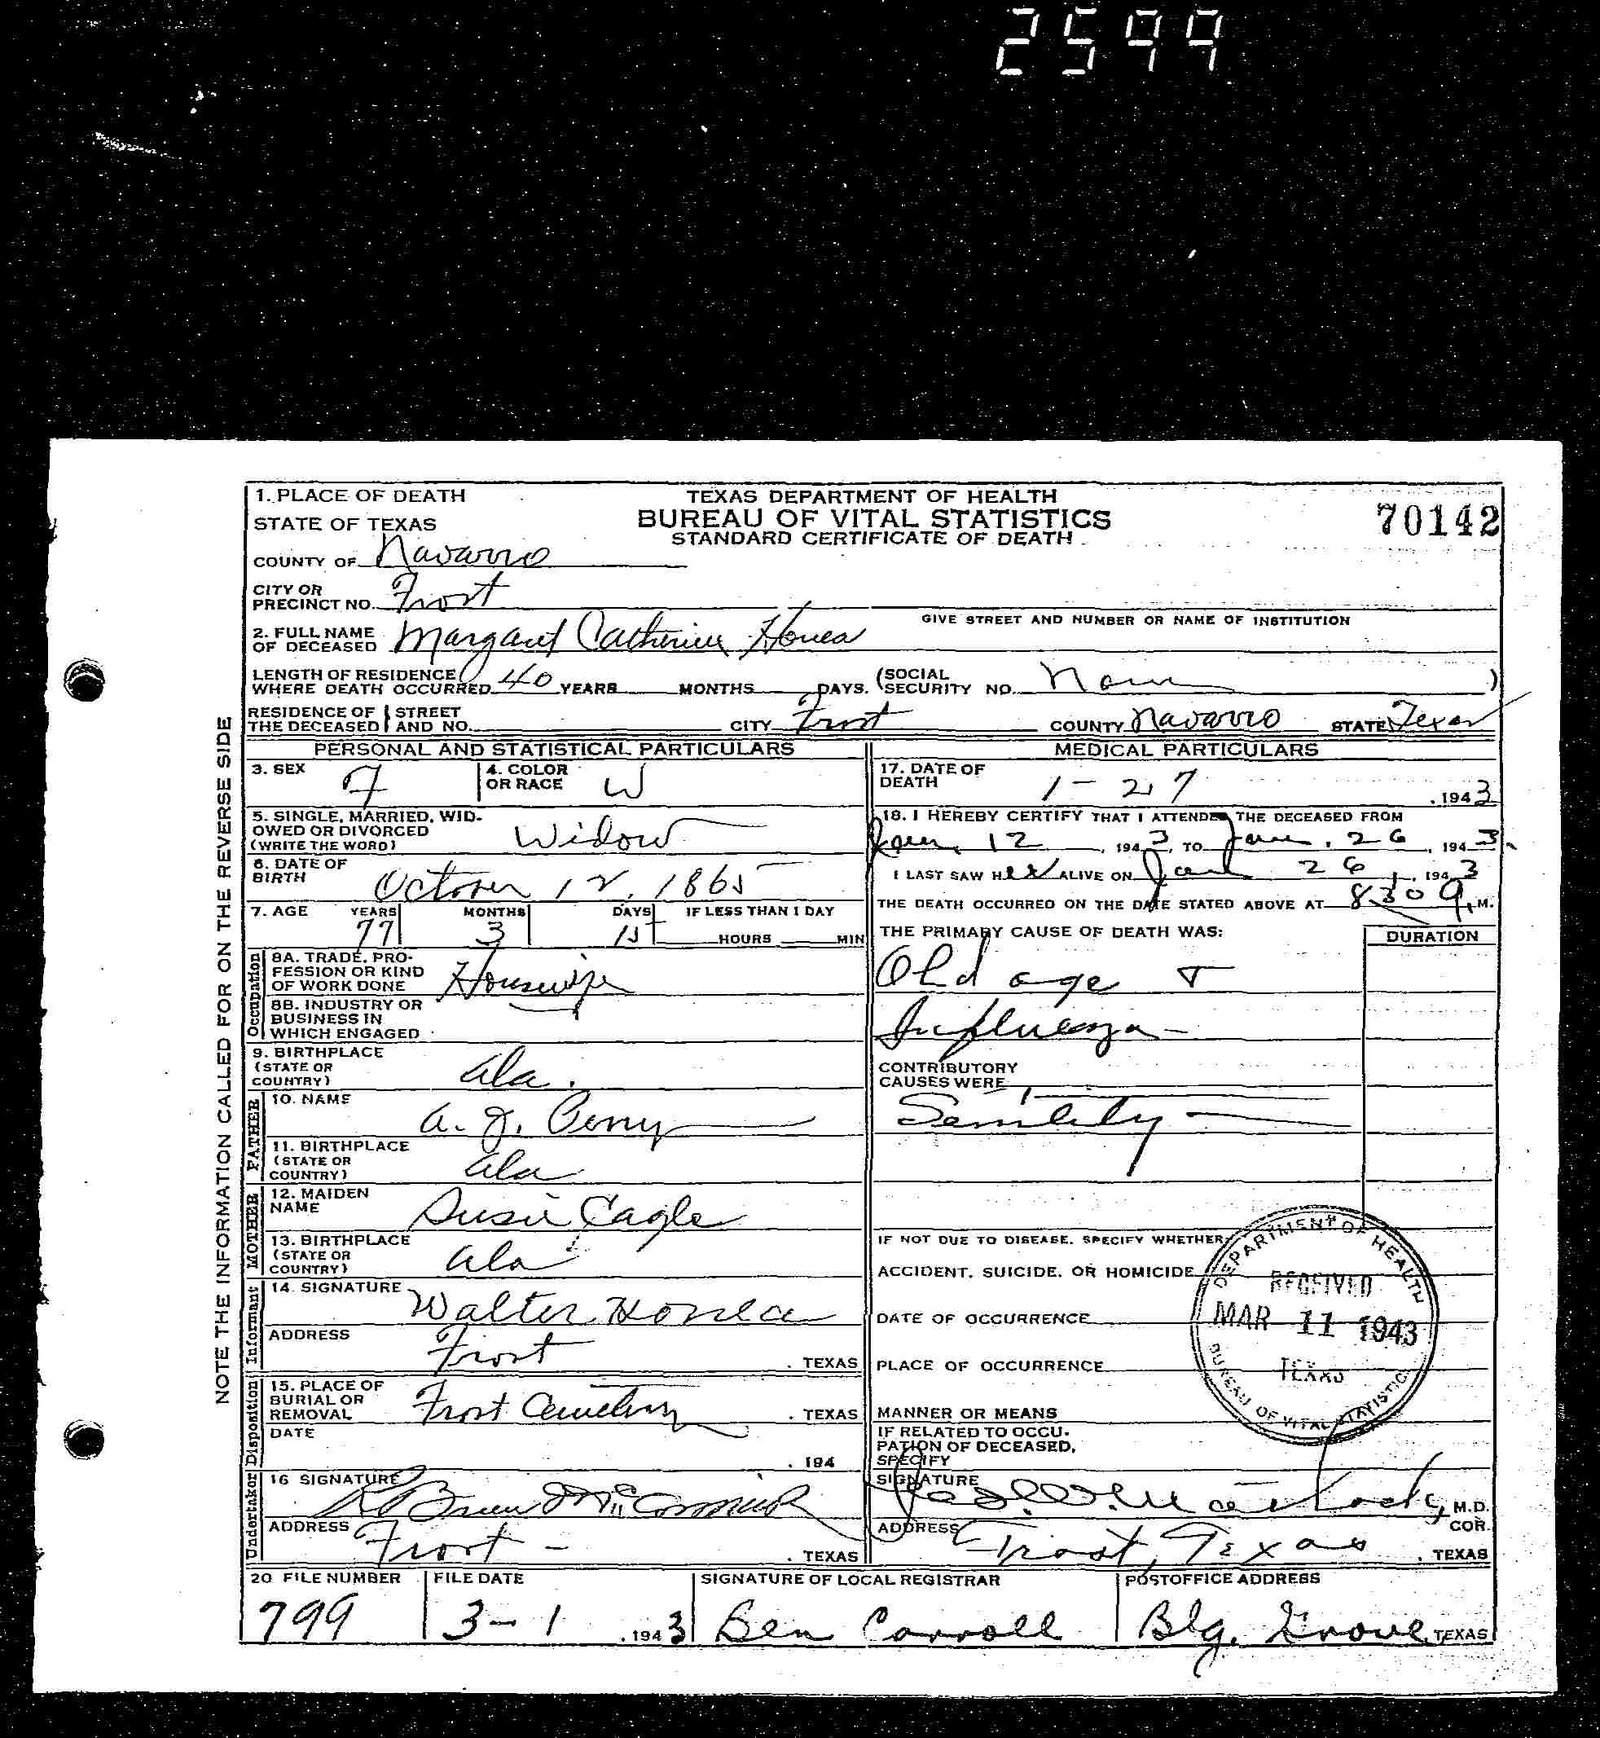 2599
1. PLACE OF DEATH
STATE OF TEXAS
COUNTY OF Navarro
CITY OR
PRECINCT NO. Frost
TEXAS DEPARTMENT OF HEALTH
BUREAU OF VITAL STATISTICS
STANDARD CERTIFICATE OF DEATH
70142
GIVE STREET AND NUMBER OR NAME OF INSTITUTION
2. FULL NAME
OF DECEASED Margaret Catherine Honea
LENGTH OF RESIDENCE
WHERE DEATH OCCURRED 40 YEARS MONTHS DAYS. (SOCIAL
SECURITY NO. None )
RESIDENCE OF THE DECEASED STREET AND NO. CITY Frost COUNTY Navarro STATE Texas
NOTE THE INFORMATION CALLED FOR ON THE REVERSE SIDE
PERSONAL AND STATISTICAL PARTICULARS
3. SEX F 4. COLOR OR RACE W
5. SINGLE, MARRIED, WID-
OWED OR DIVORCED
(WRITE THE WORD) Widow
6. DATE OF
BIRTH October 12, 1865
7. AGE YEARS 77 MONTHS 3 DAYS 15 IF LESS THAN 1 DAY
HOURS MIN
Occupation
8A. TRADE, PRO-
FESSION OR KIND
OF WORK DONE Housewife
8B. INDUSTRY OR
BUSINESS IN
WHICH ENGAGED
9. BIRTHPLACE
(STATE OR
COUNTRY) Ala.
FATHER
10. NAME A. J. Perry
11. BIRTHPLACE
(STATE OR
COUNTRY) Ala
MOTHER
12. MAIDEN
NAME Susie Cagle
13. BIRTHPLACE
(STATE OR
COUNTRY) Ala
Informant
14. SIGNATURE Walter Honea
ADDRESS Frost . TEXAS
Disposition
15. PLACE OF
BURIAL OR
REMOVAL Frost Cemetery . TEXAS
DATE
. 194
Undertaker
16 SIGNATURE McCormick
ADDRESS Frost - . TEXAS
MEDICAL PARTICULARS
17. DATE OF
DEATH 1-27 , 1943
18. I HEREBY CERTIFY THAT I ATTENDED THE DECEASED FROM
Jan. 12, 1943, TO Jan. 26, 1943.
I LAST SAW Her ALIVE ON Jan 26, 1943
THE DEATH OCCURRED ON THE DATE STATED ABOVE AT 8:30 a. M.
THE PRIMARY CAUSE OF DEATH WAS: DURATION
Old age &
Influenza -
CONTRIBUTORY
CAUSES WERE
Senility
IF NOT DUE TO DISEASE, SPECIFY WHETHER:
ACCIDENT, SUICIDE, OR HOMICIDE
DATE OF OCCURRENCE
PLACE OF OCCURRENCE
MANNER OR MEANS
DEPARTMENT OF HEALTH
RECEIVED
MAR 11 1943
TEXAS
BUREAU OF VITAL STATISTICS
IF RELATED TO OCCU-
PATION OF DECEASED,
SPECIFY
SIGNATURE M.D.
COR.
ADDRESS Frost, Texas . TEXAS
20 FILE NUMBER FILE DATE SIGNATURE OF LOCAL REGISTRAR POSTOFFICE ADDRESS
799 3-1 , 1943 Ben Carroll Blg. Grove, TEXAS